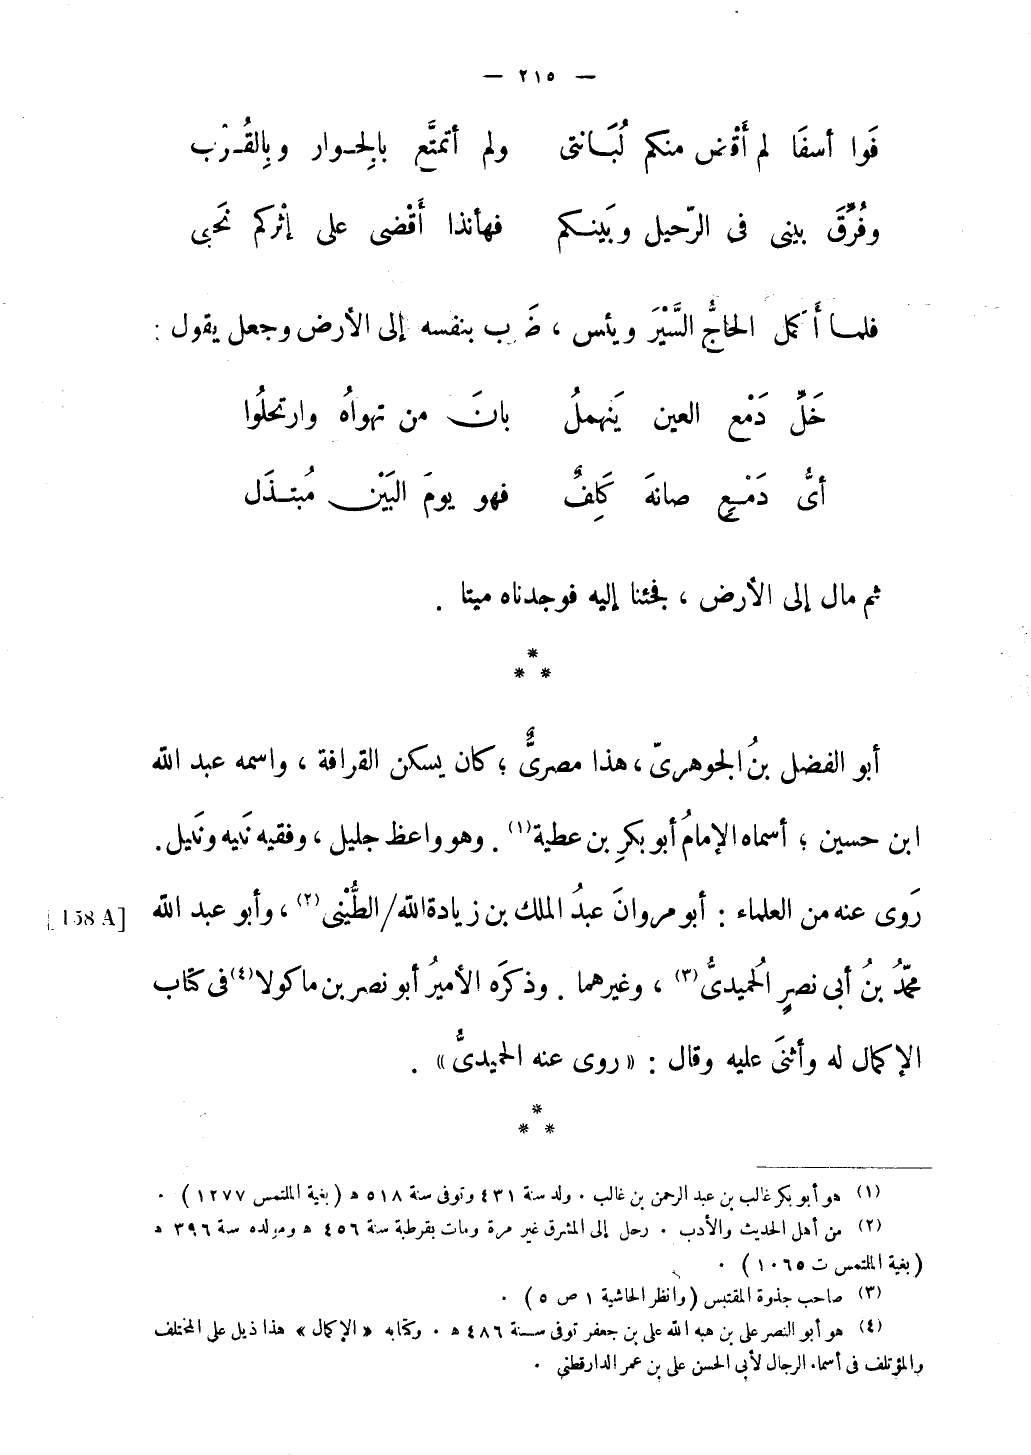 — ٢١٥ —
فَوا أسفَا لم أَقْض منكم لُبَـانتى ولم أتمتَّع بالجـوار وبِالقُـرْب
وفُرِّقَ بينى فى الرّحيل وبَينـكم فهأنذا أَقْضى على إثْركم نَحبى
فلمـا أَكمل الحاجُّ السَّيْرَ ويئس ، ضَرب بنفسه إلى الأرض وجعل يقول :
خَلِّ دَمْع العين يَنهملُ بانَ من تهواهُ وارتحلُوا
أىُّ دَمْـعٍ صانهَ كَلِفٌ فهو يومَ البَيْن مُبتـذَل
ثم مال إلى الأرض ، فجئنا إليه فوجدناه ميتا .
*
* *
أبو الفضل بنُ الجوهرىّ ، هذا مصرىٌّ ؛ كان يسكن القرافة ، واسمه عبد الله
ابن حسين ؛ أسماه الإمامُ أبو بكرِ بن عطية (١) . وهو واعظ جليل ، وفقيه نَبيه ونَبيل .
رَوى عنه من العلماء : أبو مروانَ عبدُ الملك بن زيادة الله / الطُّبْنى (٢) ، وأبو عبد الله [158 A]
محمّدُ بنُ أبى نصرٍ الحُميدىُّ (٣) ، وغيرهما . وذكرَه الأميرُ أبو نصر بن ماكولا (٤) فى كتاب
الإكمال له وأثنىَ عليه وقال : « روى عنه الحميدىُّ » .
*
* *
(١) هو أبو بكر غالب بن عبد الرحمن بن غالب . ولد سنة ٤٣١ وتوفى سنة ٥١٨ ه ( بغية الملتمس ١٢٧٧ ) .
(٢) من أهل الحديث والأدب . رحل إلى المشرق غير مرة ومات بقرطبة سنة ٤٥٦ ه ومولده سنة ٣٩٦ ه
( بغية الملتمس ت ١٠٦٥ ) .
(٣) صاحب جذوة المقتبس (وانظر الحاشية ١ ص ٥ ) .
(٤) هو أبو النصر على بن هبه الله على بن جعفر توفى سـنة ٤٨٦ ه . وكتابه « الإكمال » هذا ذيل على المختلف
والمؤتلف فى أسماء الرجال لأبى الحسن على بن عمر الدارقطنى .